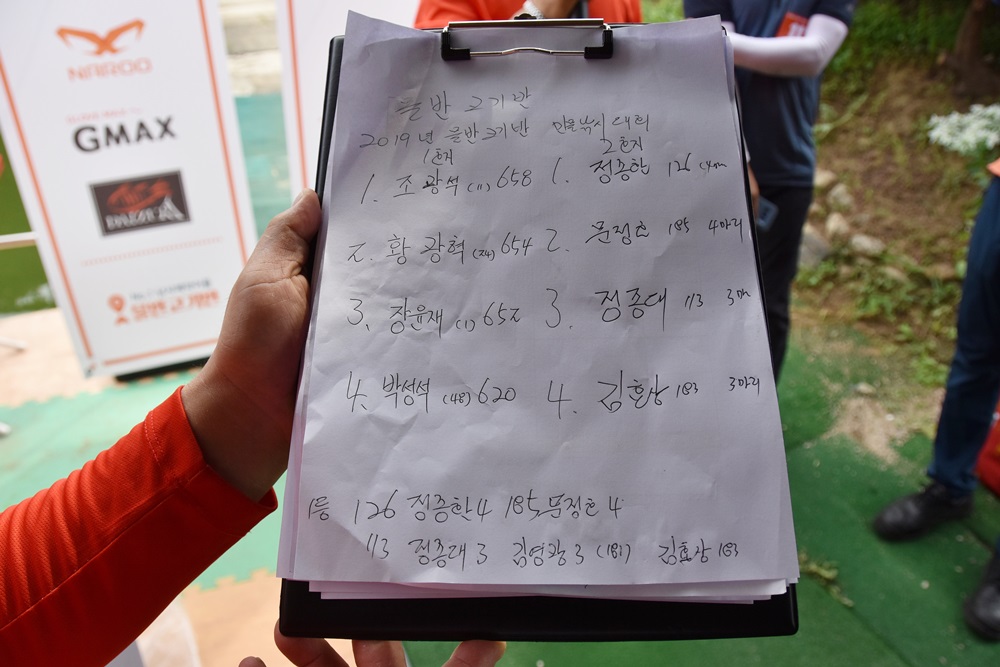 NAIROO
GMAX
을반 고기반
2019년 을반고기반 민물낚시대회
1회차 2회차
1. 조광석 (11) 658 1. 정종한 126 4마리
2. 황광혁 (24) 654 2. 문정호 185 4마리
3. 장윤재 (1) 652 3. 정종대 113 3마리
4. 박성석 (48) 620 4. 김효상 183 3마리
1등 126 정종한 4 185 문정호 4
113 정종대 3 김영광 3 (181) 김효상 183